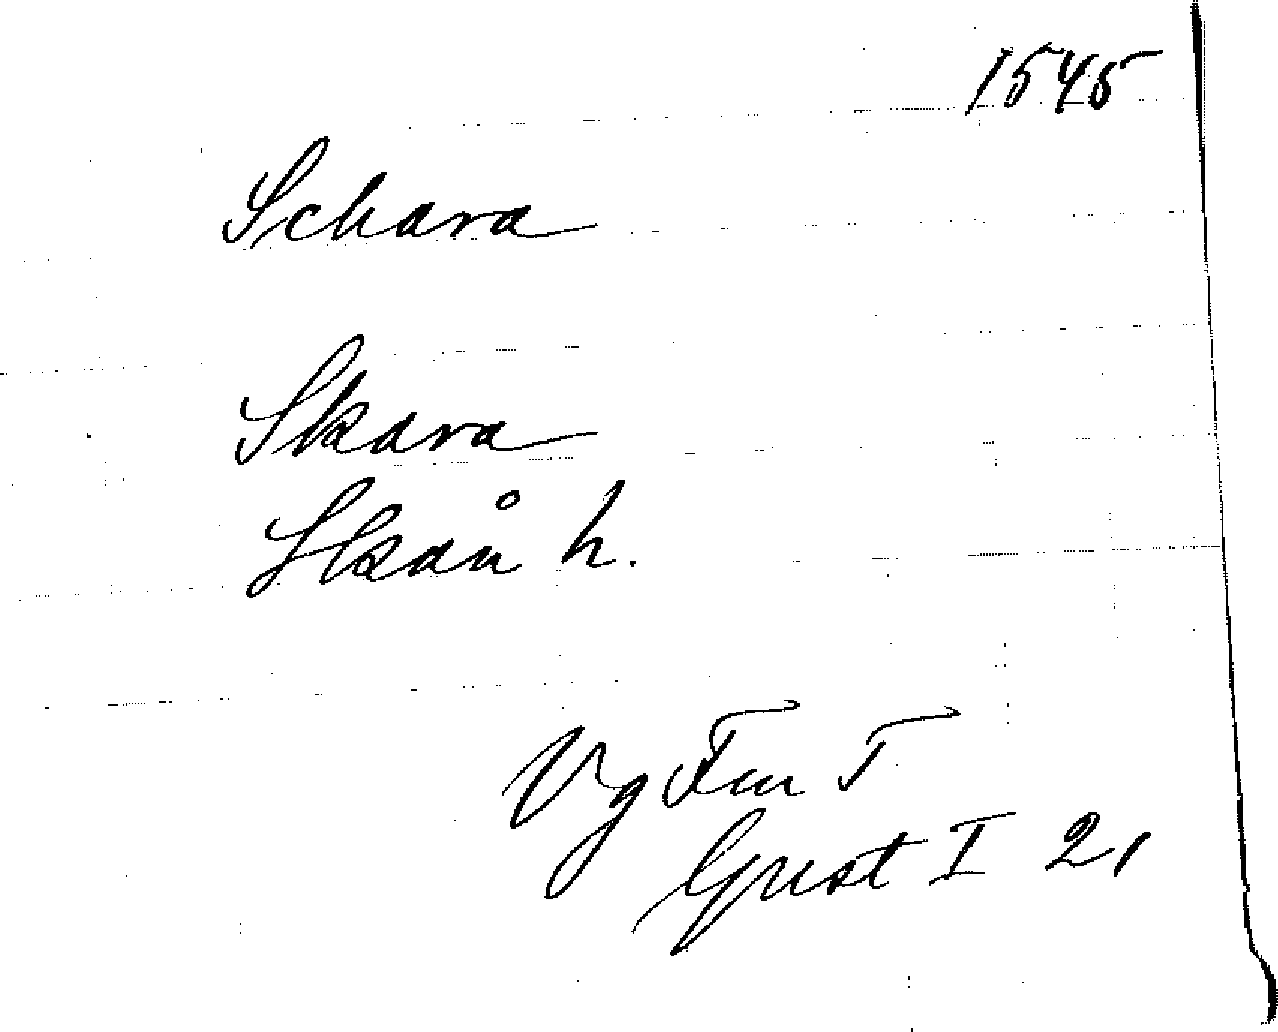 1545
Schara
Skara
Skån h.
Vg Fru T
Gust I 21